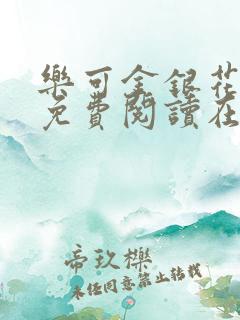 樂可金銀花
免費閱讀在
帝玖櫟
未經同意禁止轉載